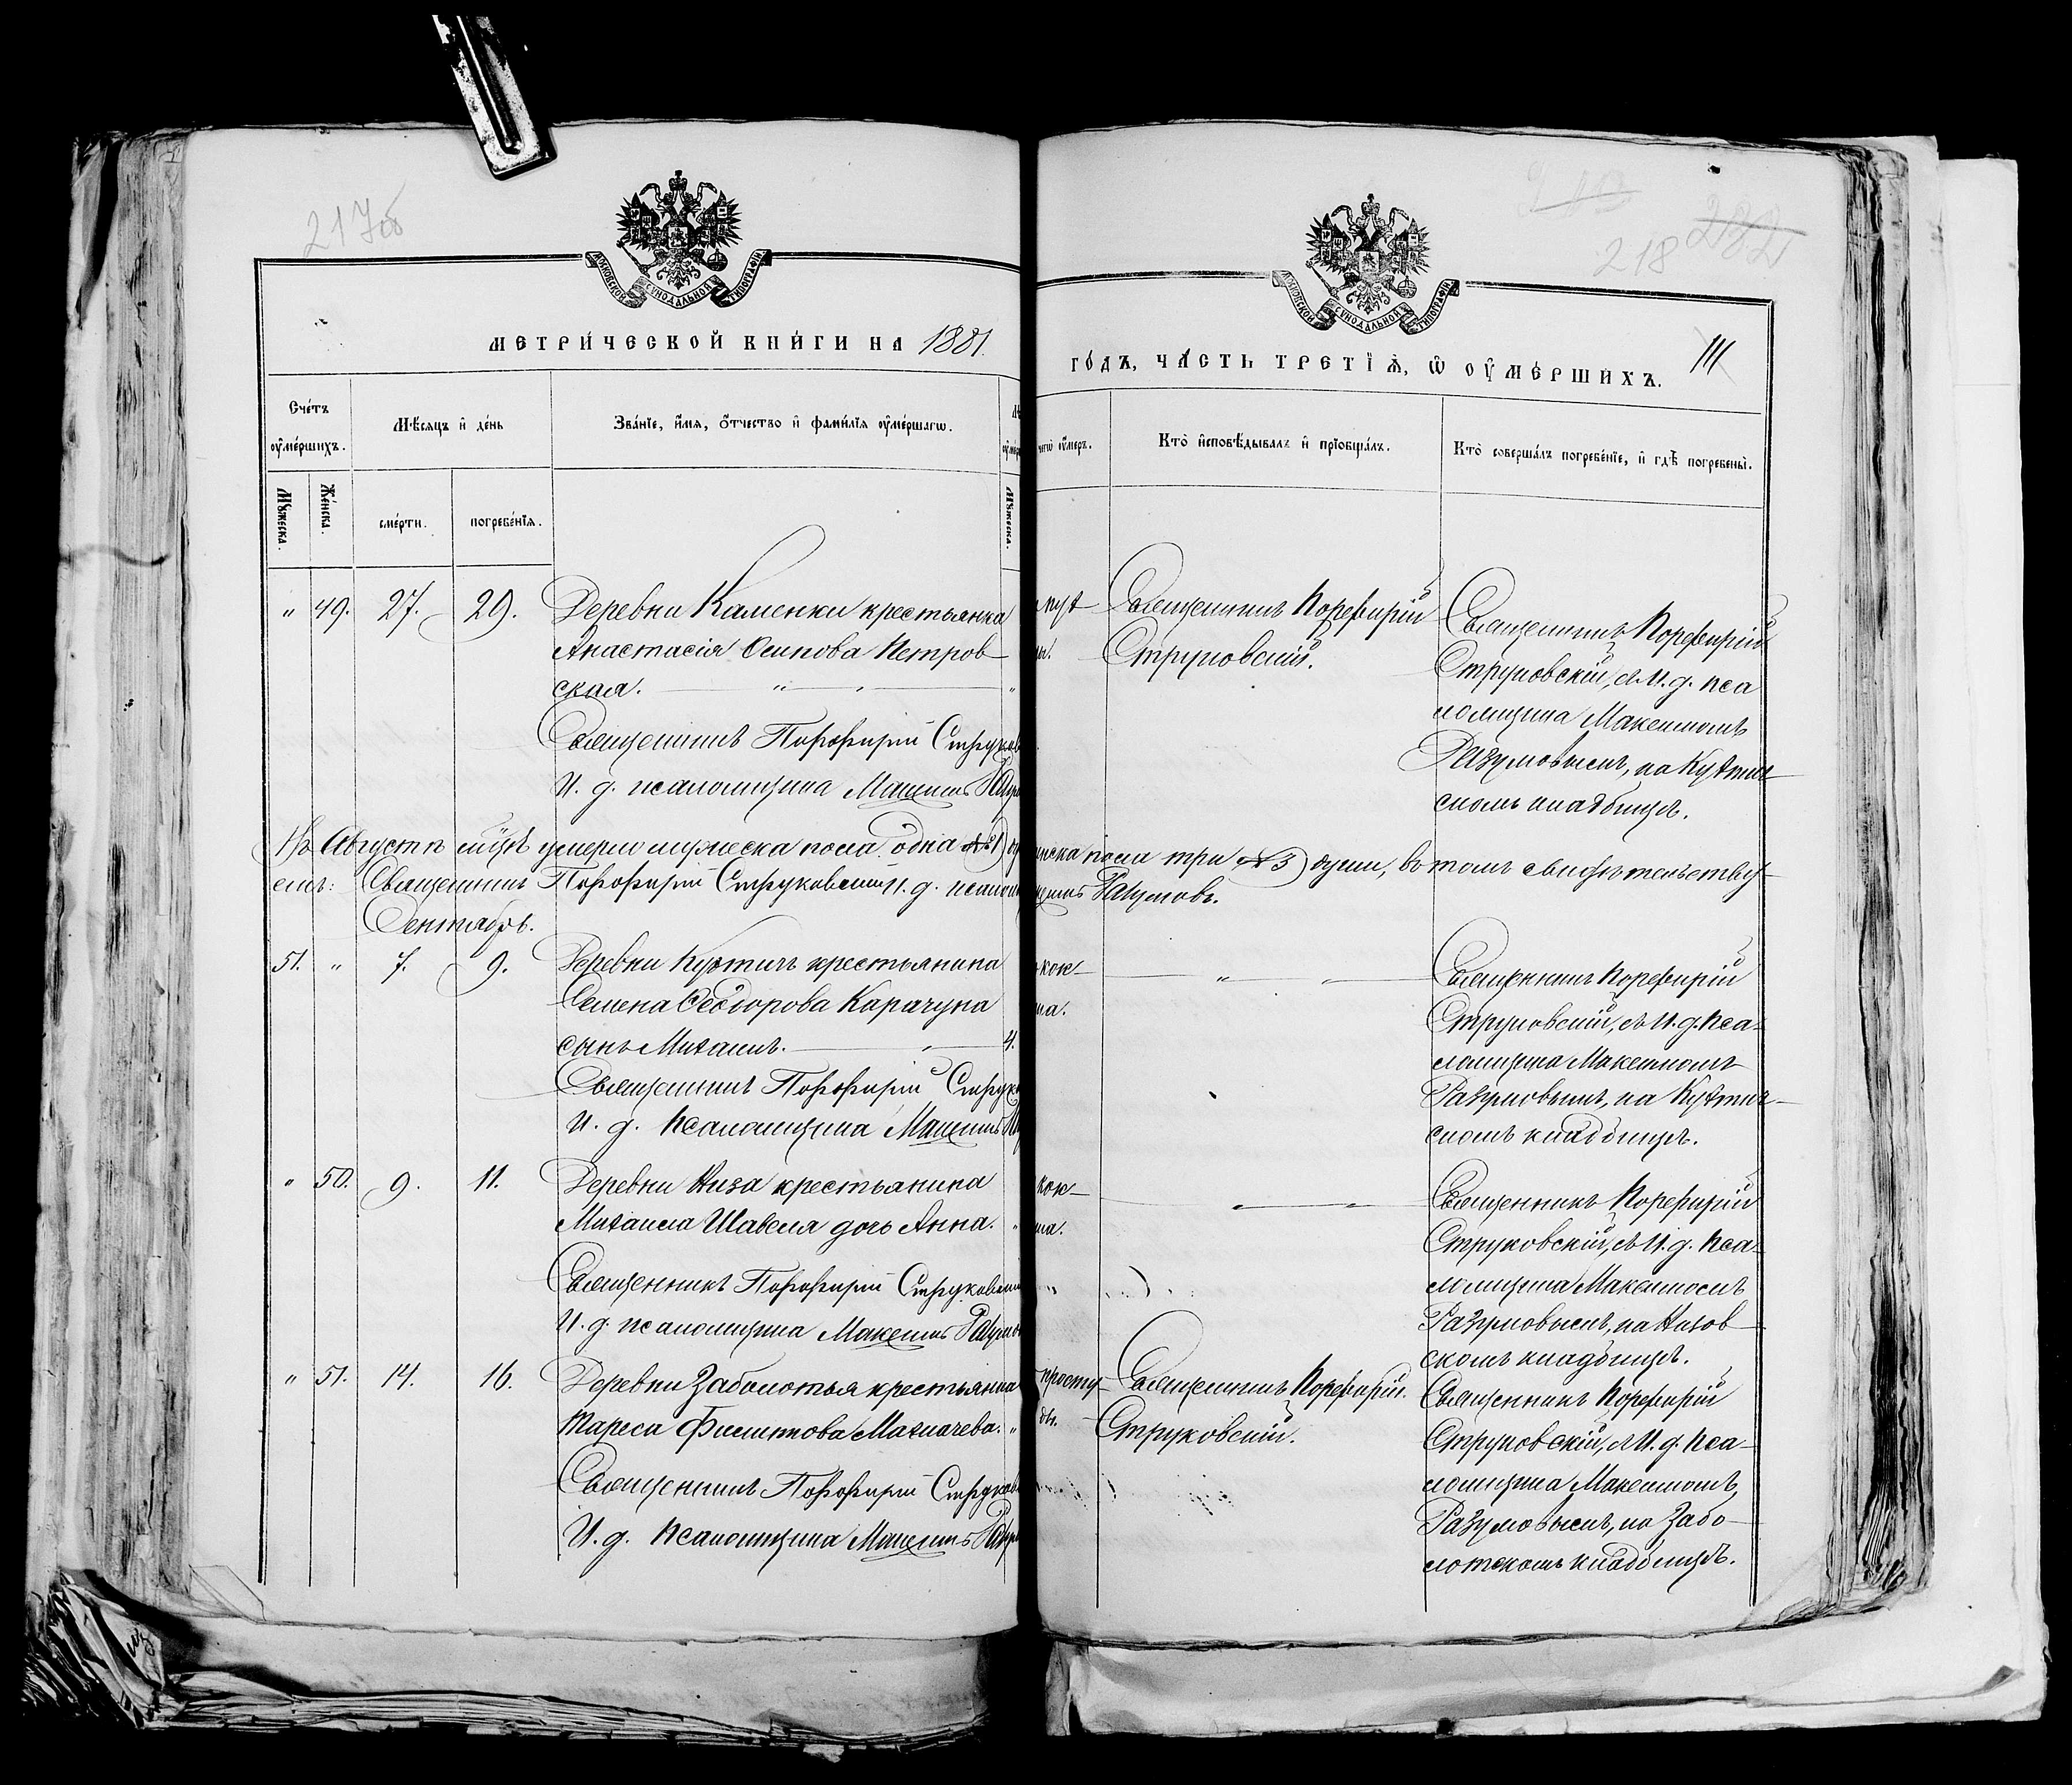 217об
218
МОСКОВСКОЙ СУНОДАЛЬНОЙ ТИПОГРАФІИ
МОСКОВСКОЙ СУНОДАЛЬНОЙ ТИПОГРАФІИ
МЕТРИ́ЧЕСКОЙ КНИ́ГИ НА 1881.
ГО́ДЪ, ЧА́СТЬ ТРЕТІ́Ѧ, Ѡ ОУ҆МЕ́РШИХЪ.
Сче́тъ оу҆ме́ршихъ.
Мѣ́сяцъ и҆ де́нь
Зва́нїе, и҆́мѧ, ѻ҆́тчество и҆ фами́лїѧ оу҆ме́ршагѡ.
Кто̀ и҆сповѣ́дывалъ и҆ прїобща́лъ.
Кто̀ соверша́лъ погребе́нїе, и҆ гдѣ̀ погребены̀.
Мꙋ́жеска.
Же́нска.
сме́рти.
погребе́нїѧ.
Мꙋ́жеска.
" 49. 27. 29. Деревни Каменки крестьянка
Анастасія Осипова Петров-
ская.
Священникъ Порфирій
И. д. псаломщика Максимъ
Священникъ Порфирій
Струковскій.
Священникъ Порфирій
Струковскій, съ И. д. пса
ломщика Максимомъ
Разумовымъ, на Кухтич-
скомъ кладбищѣ.
Въ Августѣ м͠цѣ умерло мужеска пола одна (№ 1)
женска пола три (№ 3) души, въ томъ свидѣтельству-
емъ: Священникъ Порфирій Струковскій И. д. псалом
Разумовъ.
Сентябрь.
51. " 7. 9. Деревни Кухтичъ крестьянина
Семена Ѳеодорова Карачуна
сынъ Михаилъ. 4.
Священникъ Порфирій
И. д. Псаломщика Максимъ
Священникъ Порфирій
Струковскій, съ И. д. Пса-
ломщика Максимомъ
Разумовымъ, на Кухтич-
скомъ кладбищѣ.
" 50. 9. 11. Деревни Низа крестьянина
Михаила Шавеля дочь Анна.
Священникъ Порфирій
И. д. псаломщика Максимъ
Священникъ Порфирій
Струковскій, съ И. д. Пса-
ломщика Максимомъ
Разумовымъ, на Низов-
скомъ кладбищѣ.
" 51. 14. 16. Деревни Заболотья крестьянка
Филиппова Махначева.
Священникъ Порфирій
И. д. Псаломщика Максимъ
просту-
ды.
Священникъ Порфирій
Струковскій.
Священникъ Порфирій
Струковскій, съ И. д. Пса-
ломщика Максимомъ
Разумовымъ, на Забо-
лотскомъ кладбищѣ.